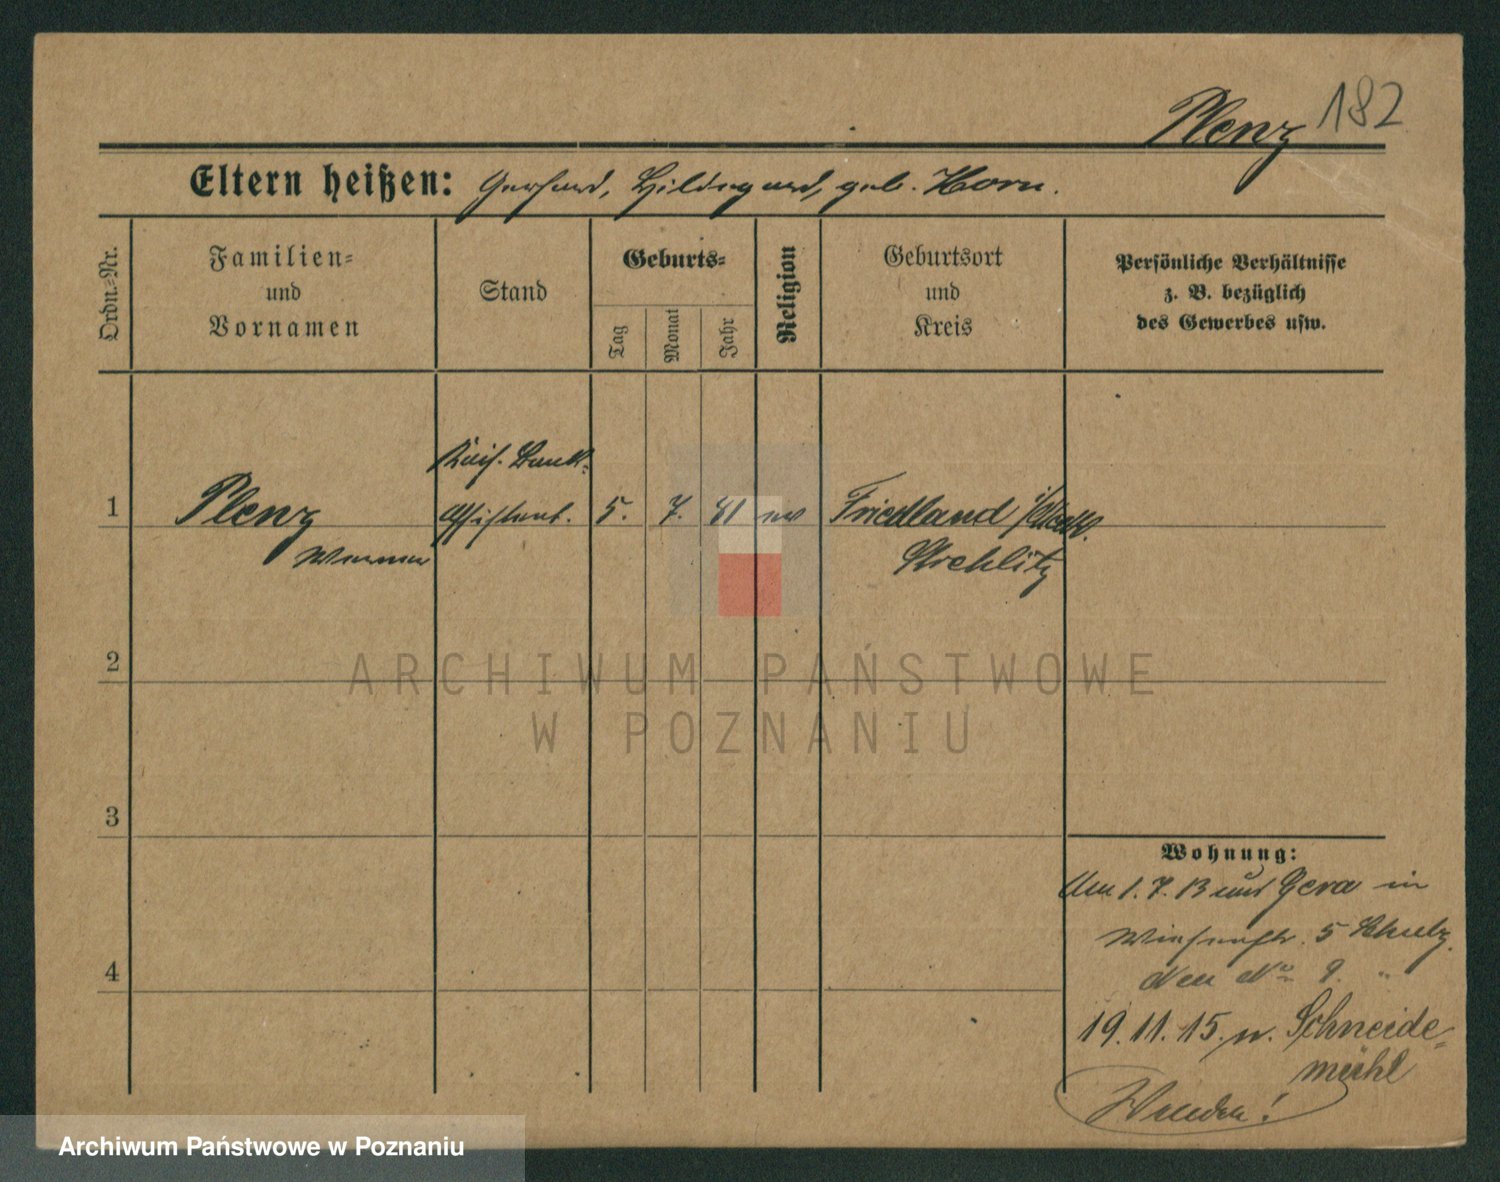 182
Plenz
Eltern heißen: Gerhard, Hildegard, geb. Horn.
Ordn.-Nr.
Familien-
und
Vornamen
Stand
Geburts-
Tag
Monat
Jahr
Religion
Geburtsort
und
Kreis
Persönliche Verhältnisse
z. B. bezüglich
des Gewerbes usw.
Kais. Bank-
1 Plenz Assistent. 5. 7. 81 ev Friedland i/Meckl.
Werner Strehlitz
2
ARCHIWUM PAŃSTWOWE
W POZNANIU
3
Wohnung:
1. 7. 13 Gera in
5 Schulz.
4
Neu No 9. "
19. 11. 15. n. Schneide-
mühl
Wenden!
Archiwum Państwowe w Poznaniu